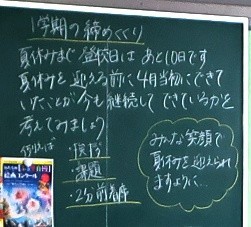 1学期の締めくくり
夏休みまで登校日は あと10日です
夏休みを迎える前に4月当初にできて
いたことが今も継続してできているかを
考えてみましょう
例えば
・挨拶
・課題
・2分前着席
みんな笑顔で
夏休みを迎えられ
ますように…
絵画コンクール